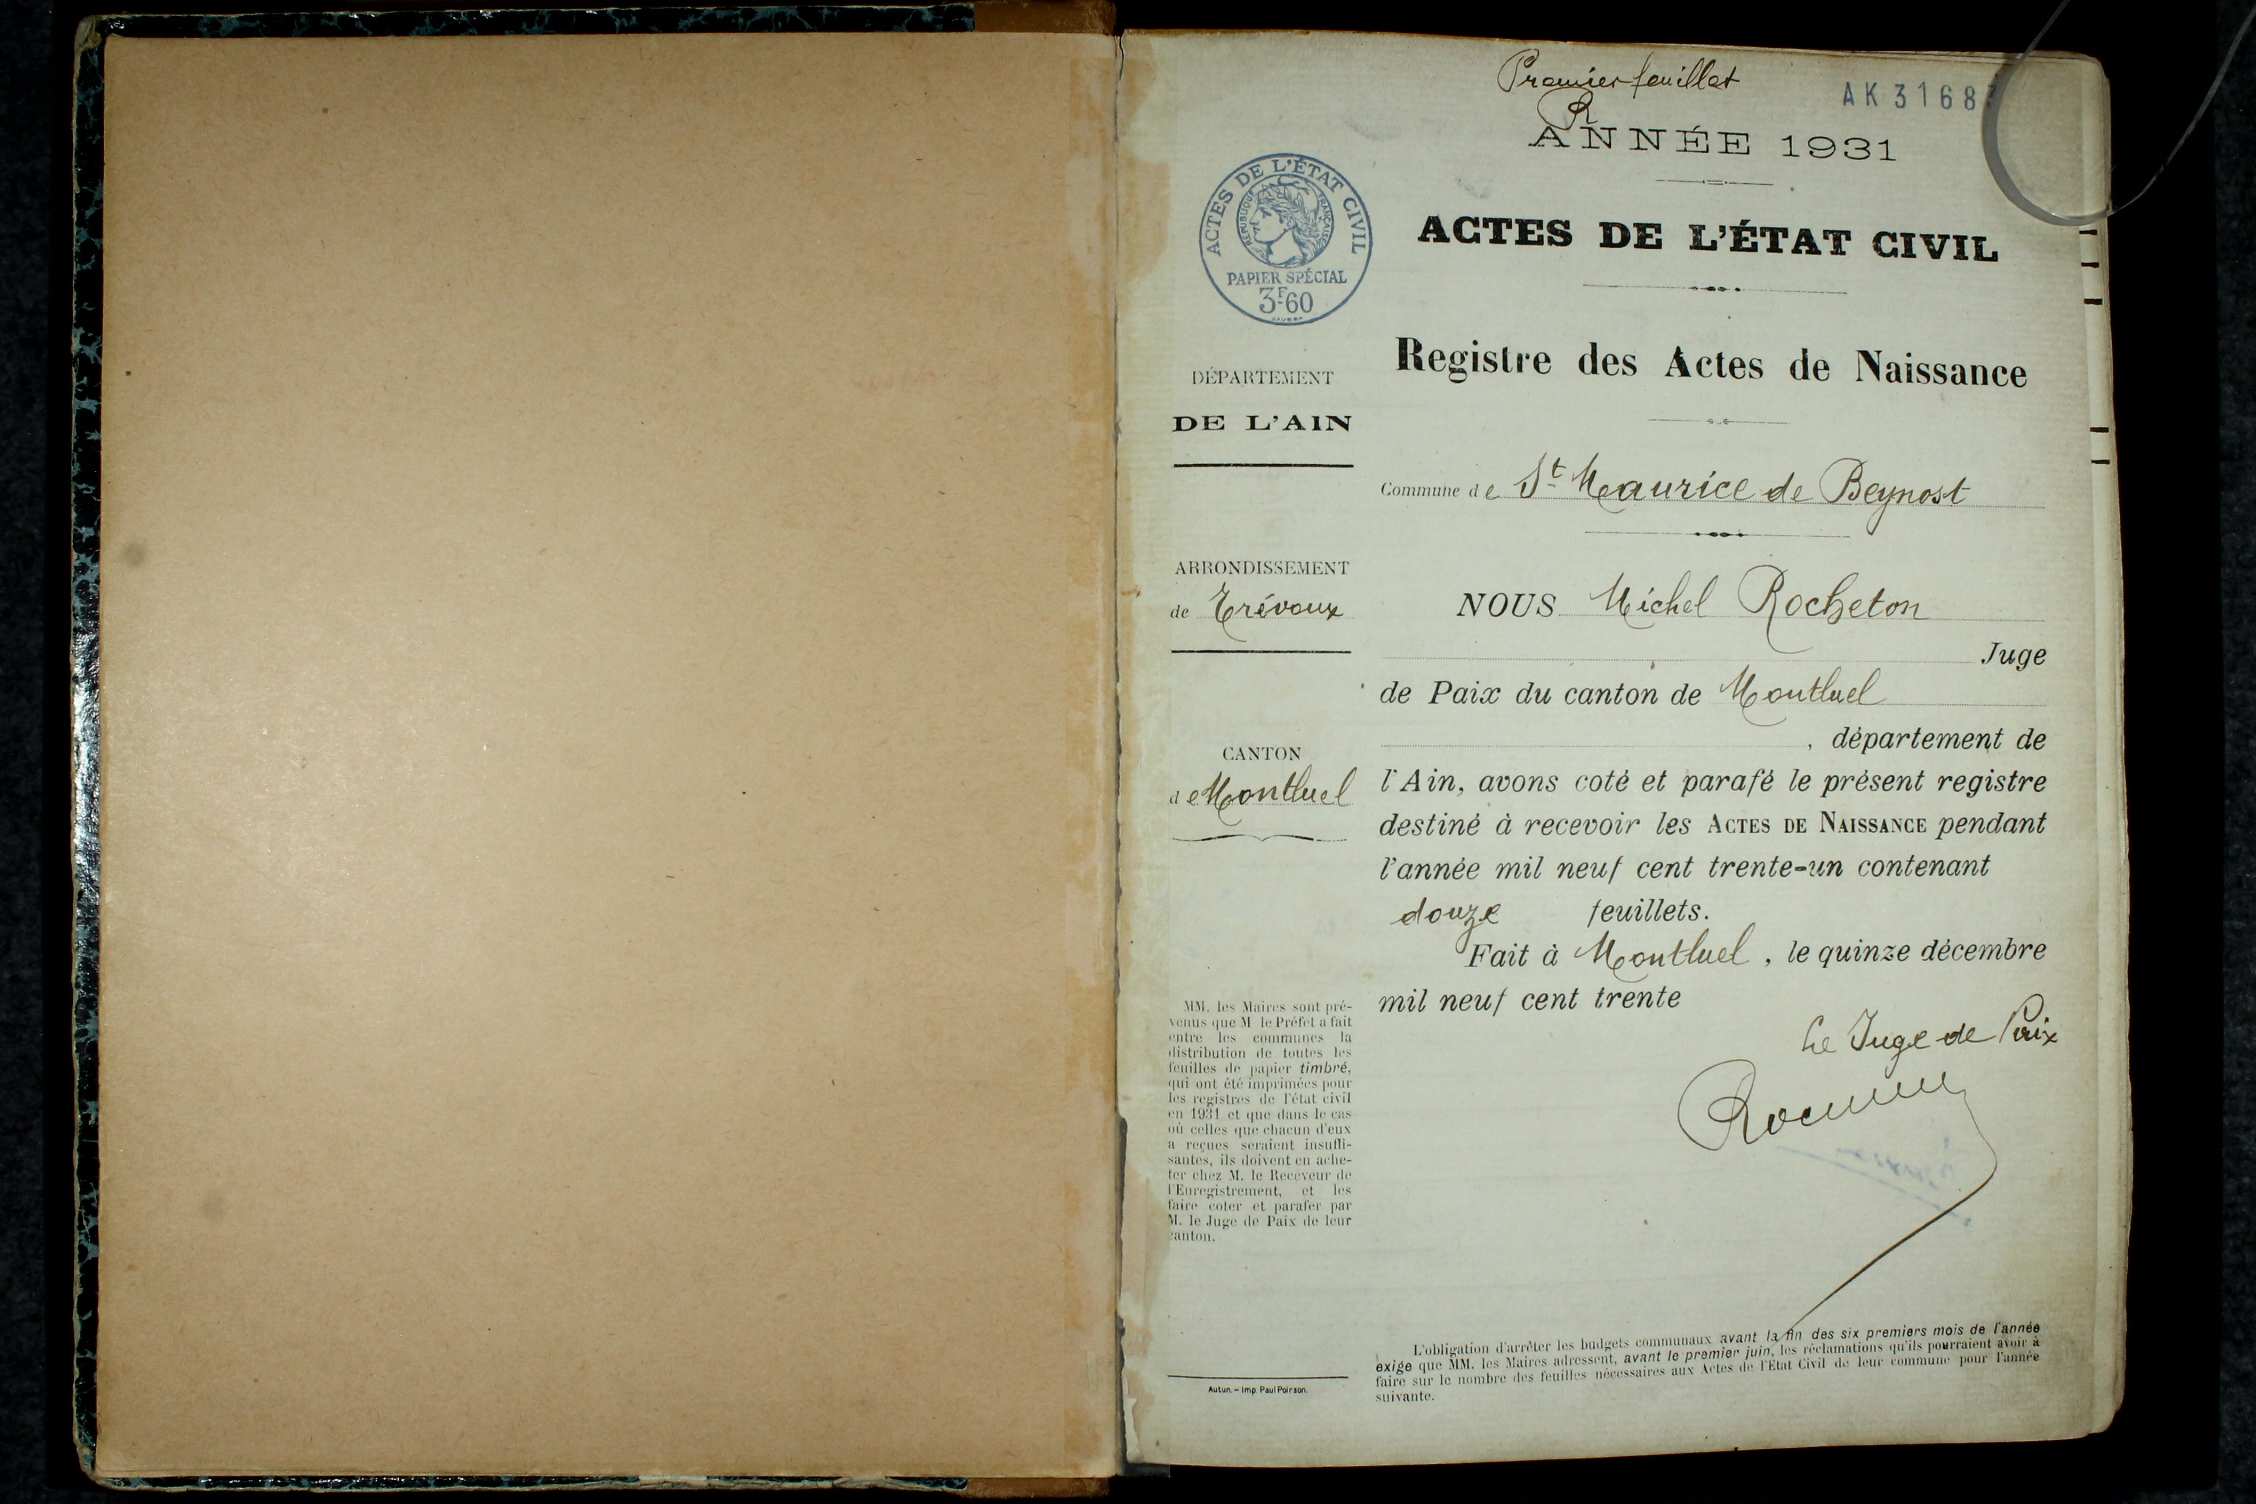 Premier feuillet
R
AK 3168
ANNÉE 1931
ACTES DE L'ÉTAT CIVIL
RÉPUBLIQUE FRANÇAISE
PAPIER SPÉCIAL
3F60
ACTES DE L'ÉTAT CIVIL
Registre des Actes de Naissance
DÉPARTEMENT
DE L'AIN
Commune de St Maurice de Beynost
ARRONDISSEMENT
de Trévoux
CANTON
de Montluel
NOUS Michel Rocheton
Juge
de Paix du canton de Montluel
, département de
l'Ain, avons coté et parafé le présent registre
destiné à recevoir les ACTES DE NAISSANCE pendant
l'année mil neuf cent trente-un contenant
douze feuillets.
Fait à Montluel, le quinze décembre
mil neuf cent trente
Le Juge de Paix
MM. les Maires sont pré-
venus que M le Préfet a fait
entre les communes la
distribution de toutes les
feuilles de papier timbré,
qui ont été imprimées pour
les registres de l'état civil
en 1931 et que dans le cas
où celles que chacun d'eux
a reçues seraient insuffi-
santes, ils doivent en ache-
ter chez M. le Receveur de
l'Enregistrement, et les
faire coter et parafer par
M. le Juge de Paix de leur
canton.
Autun. – Imp. Paul Poirson.
L'obligation d'arrêter les budgets communaux avant la fin des six premiers mois de l'année
exige que MM. les Maires adressent, avant le premier juin, les réclamations qu'ils pourraient avoir à
faire sur le nombre des feuilles nécessaires aux Actes de l'Etat Civil de leur commune pour l'année
suivante.